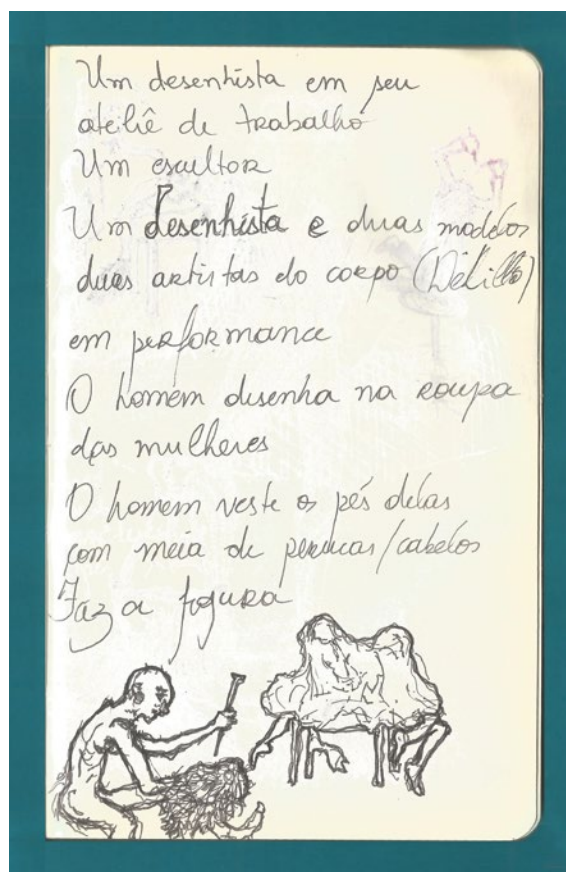 Um desenhista em seu
ateliê de trabalho
Um escultor
Um desenhista e duas modelos
duas artistas do corpo (Delillo)
em performance
O homem desenha na roupa
das mulheres
O homem veste os pés delas
com meia de perucas/cabelos
Faz a figura